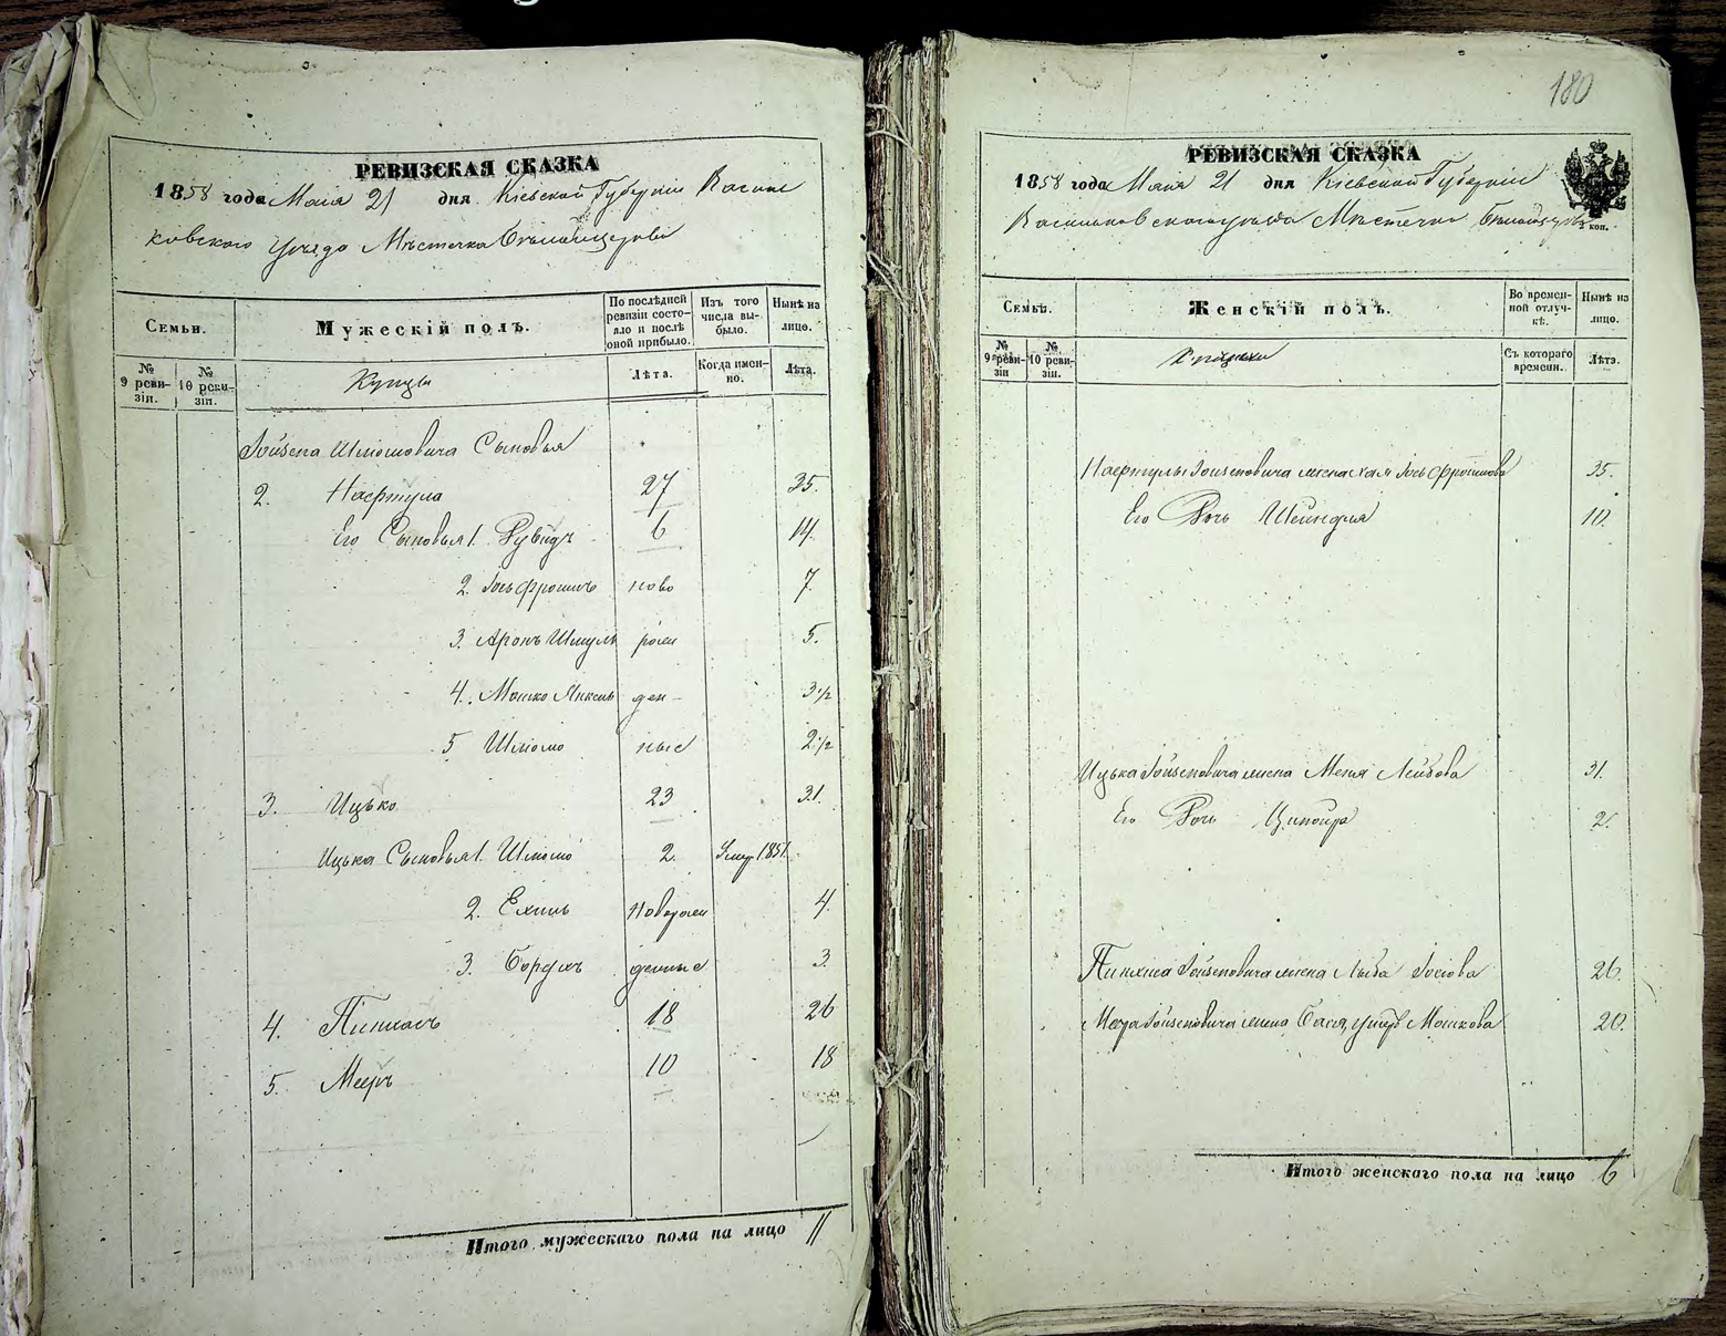 РЕВИЗСКАЯ СКАЗКА
1858 года Маія 21 дня Кіевской Губерніи Василь
ковского Уезда Мѣстечка Бѣлойцеркви
Семьи.
Мужескій полъ.
По послѣдней ревизіи состо-
яло и послѣ
оной прибыло.
Изъ того
числа вы-
было.
Нынѣ на
лицо.
№
9 реви-
зіи.
№
10 реви-
зіи.
Купцы
Лѣта.
Когда имен-
но.
Лѣта.
Шлiомовича Сыновья
2. Нафтула 27 35.
Его Сыновья 1. Рувидъ 6 14.
2. ново 7
3. Аронъ Шмуль рож 5.
4. Мошко Янкель ден- 3 1/2
5 Шлiомо ные 2 1/2
3. Ицько 23 31.
Ицька Сыновья 1. Шлiомо 2. Умер 1851.
2. Ехиль Новорож 4.
3. Борухъ денные 3.
4. Пинхасъ 18 26
5. Меиръ 10 18
Итого мужескаго пола на лицо 11
180
РЕВИЗСКАЯ СКАЗКА
1858 года Маія 21 дня Кіевской Губерніи
Васильковского уезда Мѣстечка Бѣлойцеркви
коп.
Семьи.
Женскій полъ.
Во времен-
ной отлуч-
кѣ.
Нынѣ на
лицо.
№
9 реви-
зіи
№
10 реви-
зіи.
Купчихи
Съ котораго
времени.
Лѣта.
Нафтулы жена 35.
Его Дочь Шейндля 10.
Ицька жена Меня Лейбова 31.
Его Дочь Ципойра 2.
Пинхаса жена Лыба Іосiова 26.
Меера жена Бася Мошкова 20.
Итого женскаго пола на лицо 6